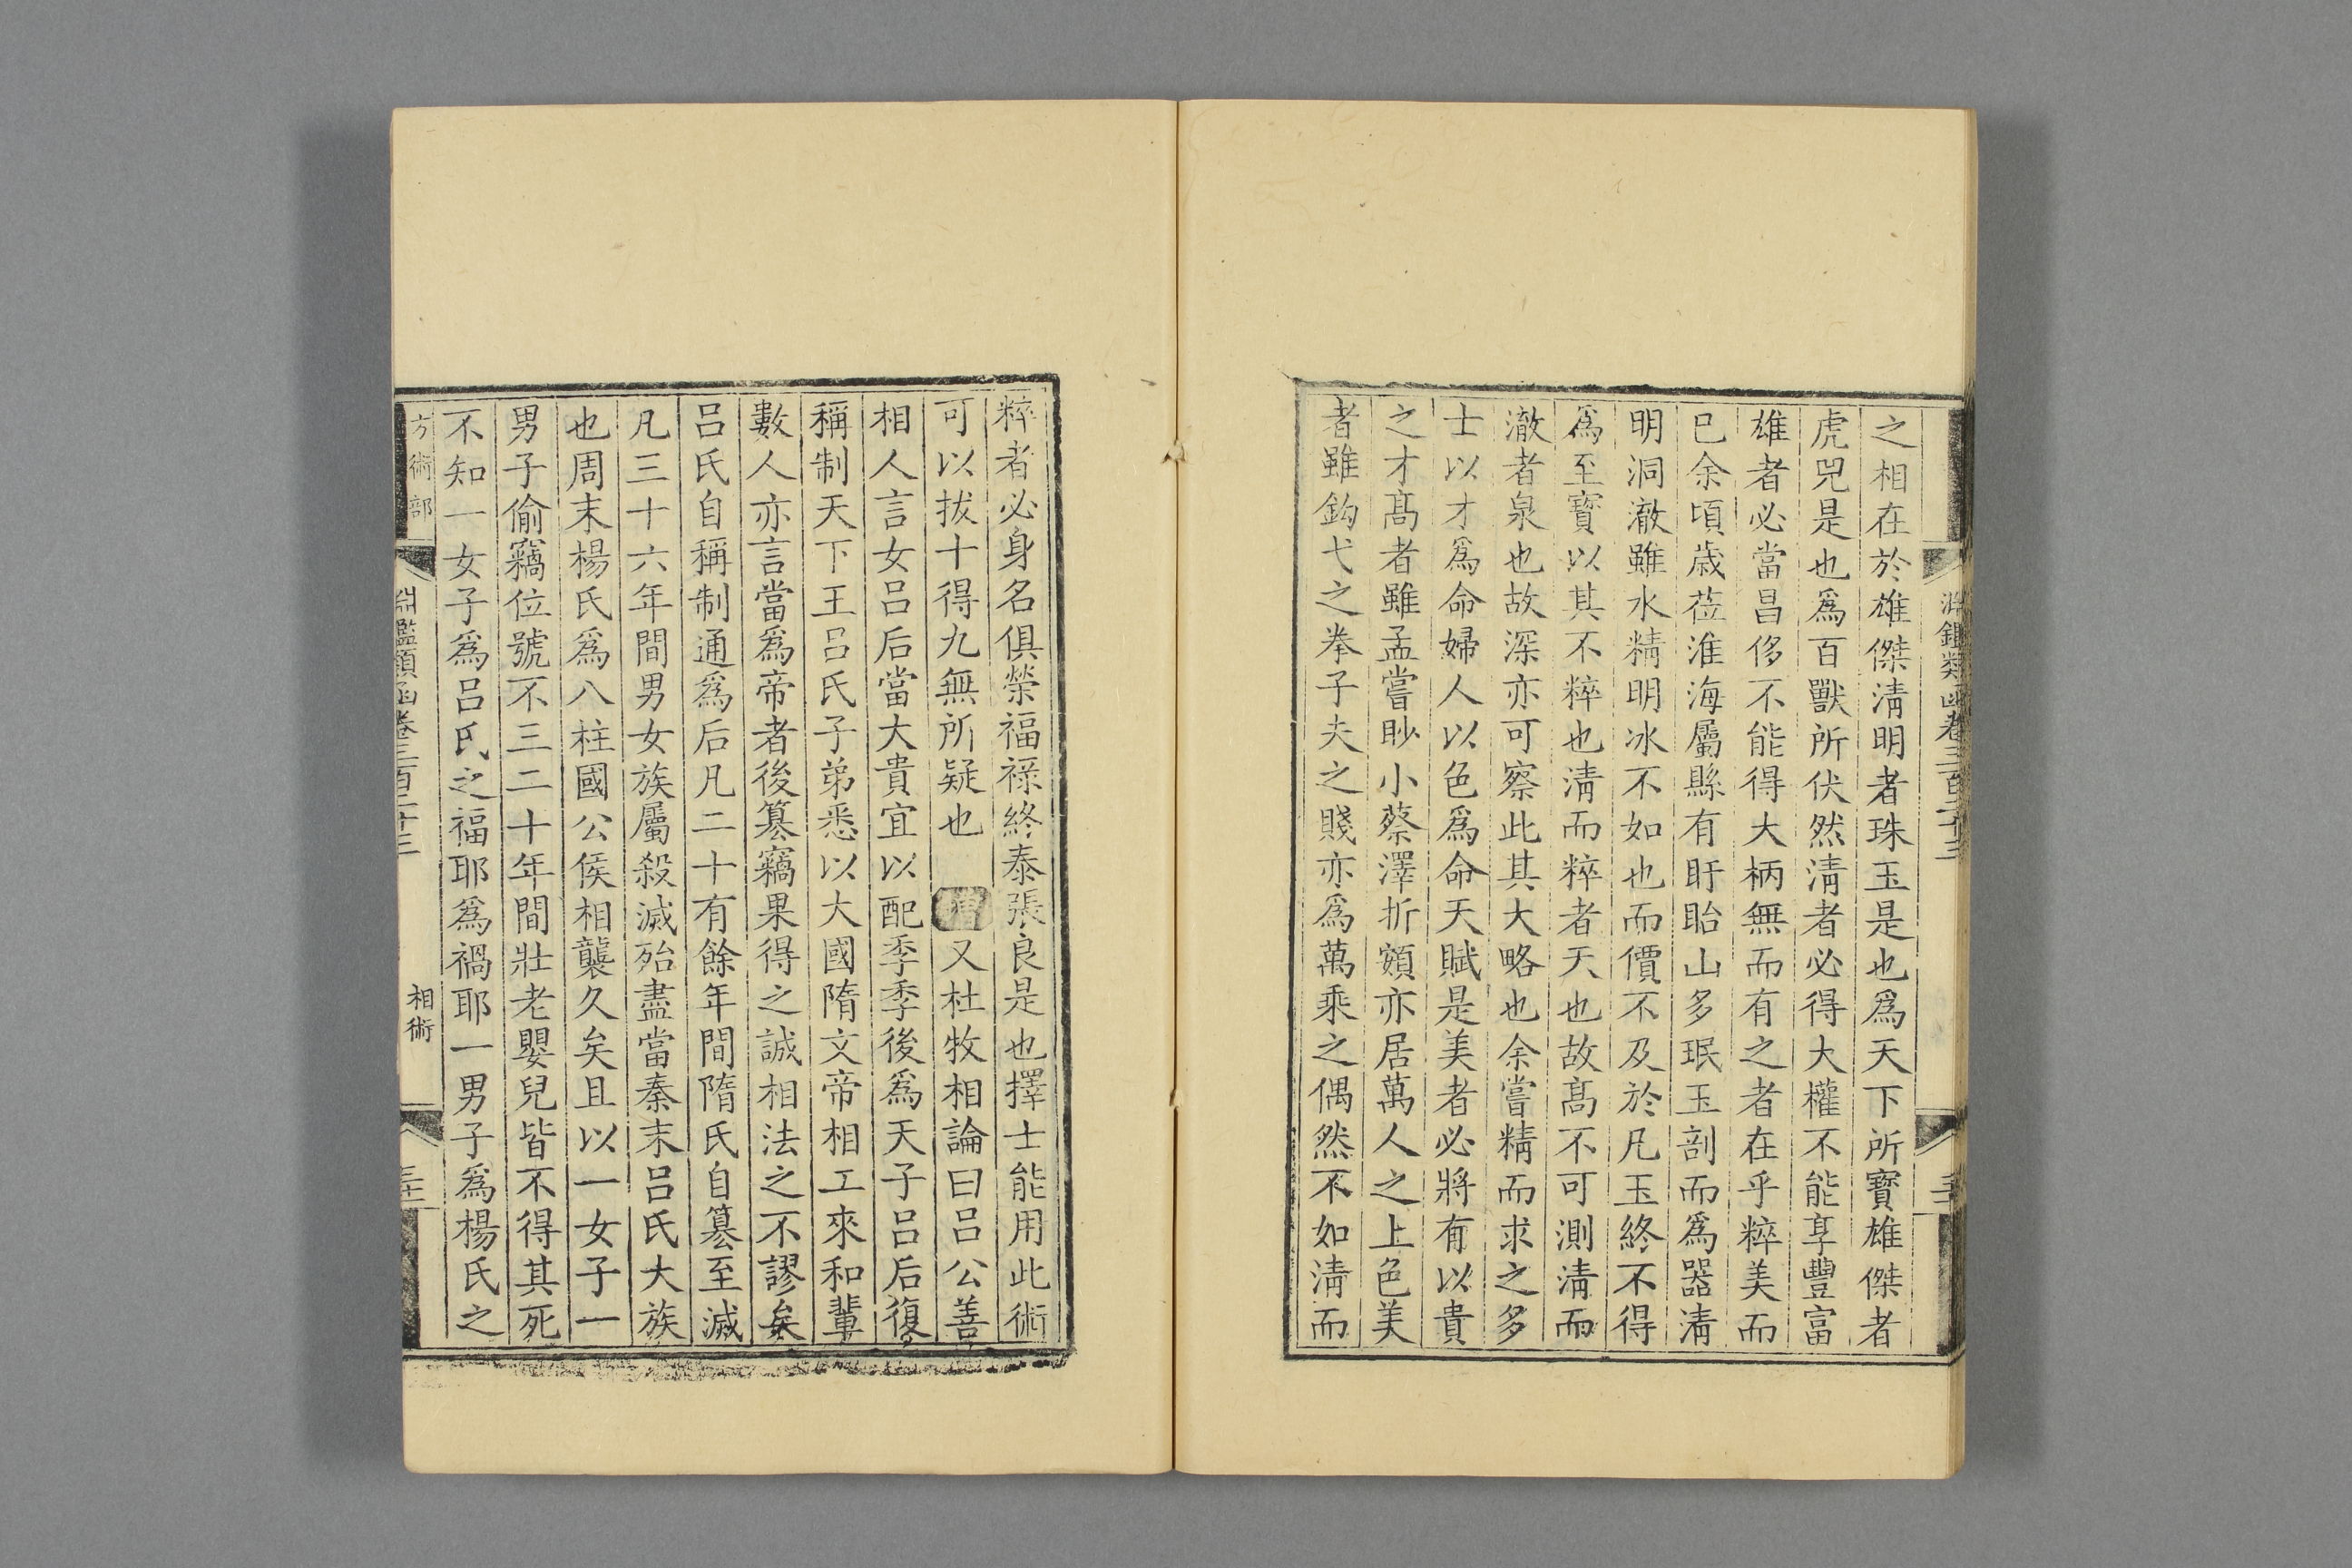 淵鑑類函卷三百二十三
之相在於雄傑淸明者珠玉是也爲天下所寳雄傑者
虎兕是也爲百獸所伏然淸者必得大權不能享豐富
雄者必當昌侈不能得大柄無而有之者在乎粹美而
已余頃歳莅淮海屬縣有盱眙山多珉玉剖而爲器淸
明洞澈雖水精明冰不如也而價不及於凡玉終不得
爲至寳以其不粹也淸而粹者天也故髙不可測淸而
澈者泉也故深亦可察此其大略也余嘗精而求之多
士以才爲命婦人以色爲命天賦是美者必將有以貴
之才髙者雖孟嘗眇小蔡澤折頞亦居萬人之上色美
者雖鈎弋之拳子夫之賤亦爲萬乘之偶然不如淸而
粹者必身名俱榮福祿終泰張良是也擇士能用此術
可以拔十得九無所疑也 增又杜牧相論曰呂公善
相人言女呂后當大貴宜以配季季後爲天子呂后復
稱制天下王呂氏子弟悉以大國隋文帝相工來和輩
數人亦言當爲帝者後篡竊果得之誠相法之不謬矣
呂氏自稱制通爲后凡二十有餘年間隋氏自篡至滅
凡三十六年間男女族屬殺滅殆盡當秦末呂氏大族
也周末楊氏爲八柱國公侯相襲久矣且以一女子一
男子偷竊位號不三二十年間壯老嬰兒皆不得其死
不知一女子爲呂氏之福耶爲禍耶一男子爲楊氏之
方術部
淵鑑類函卷三百二十三
相術